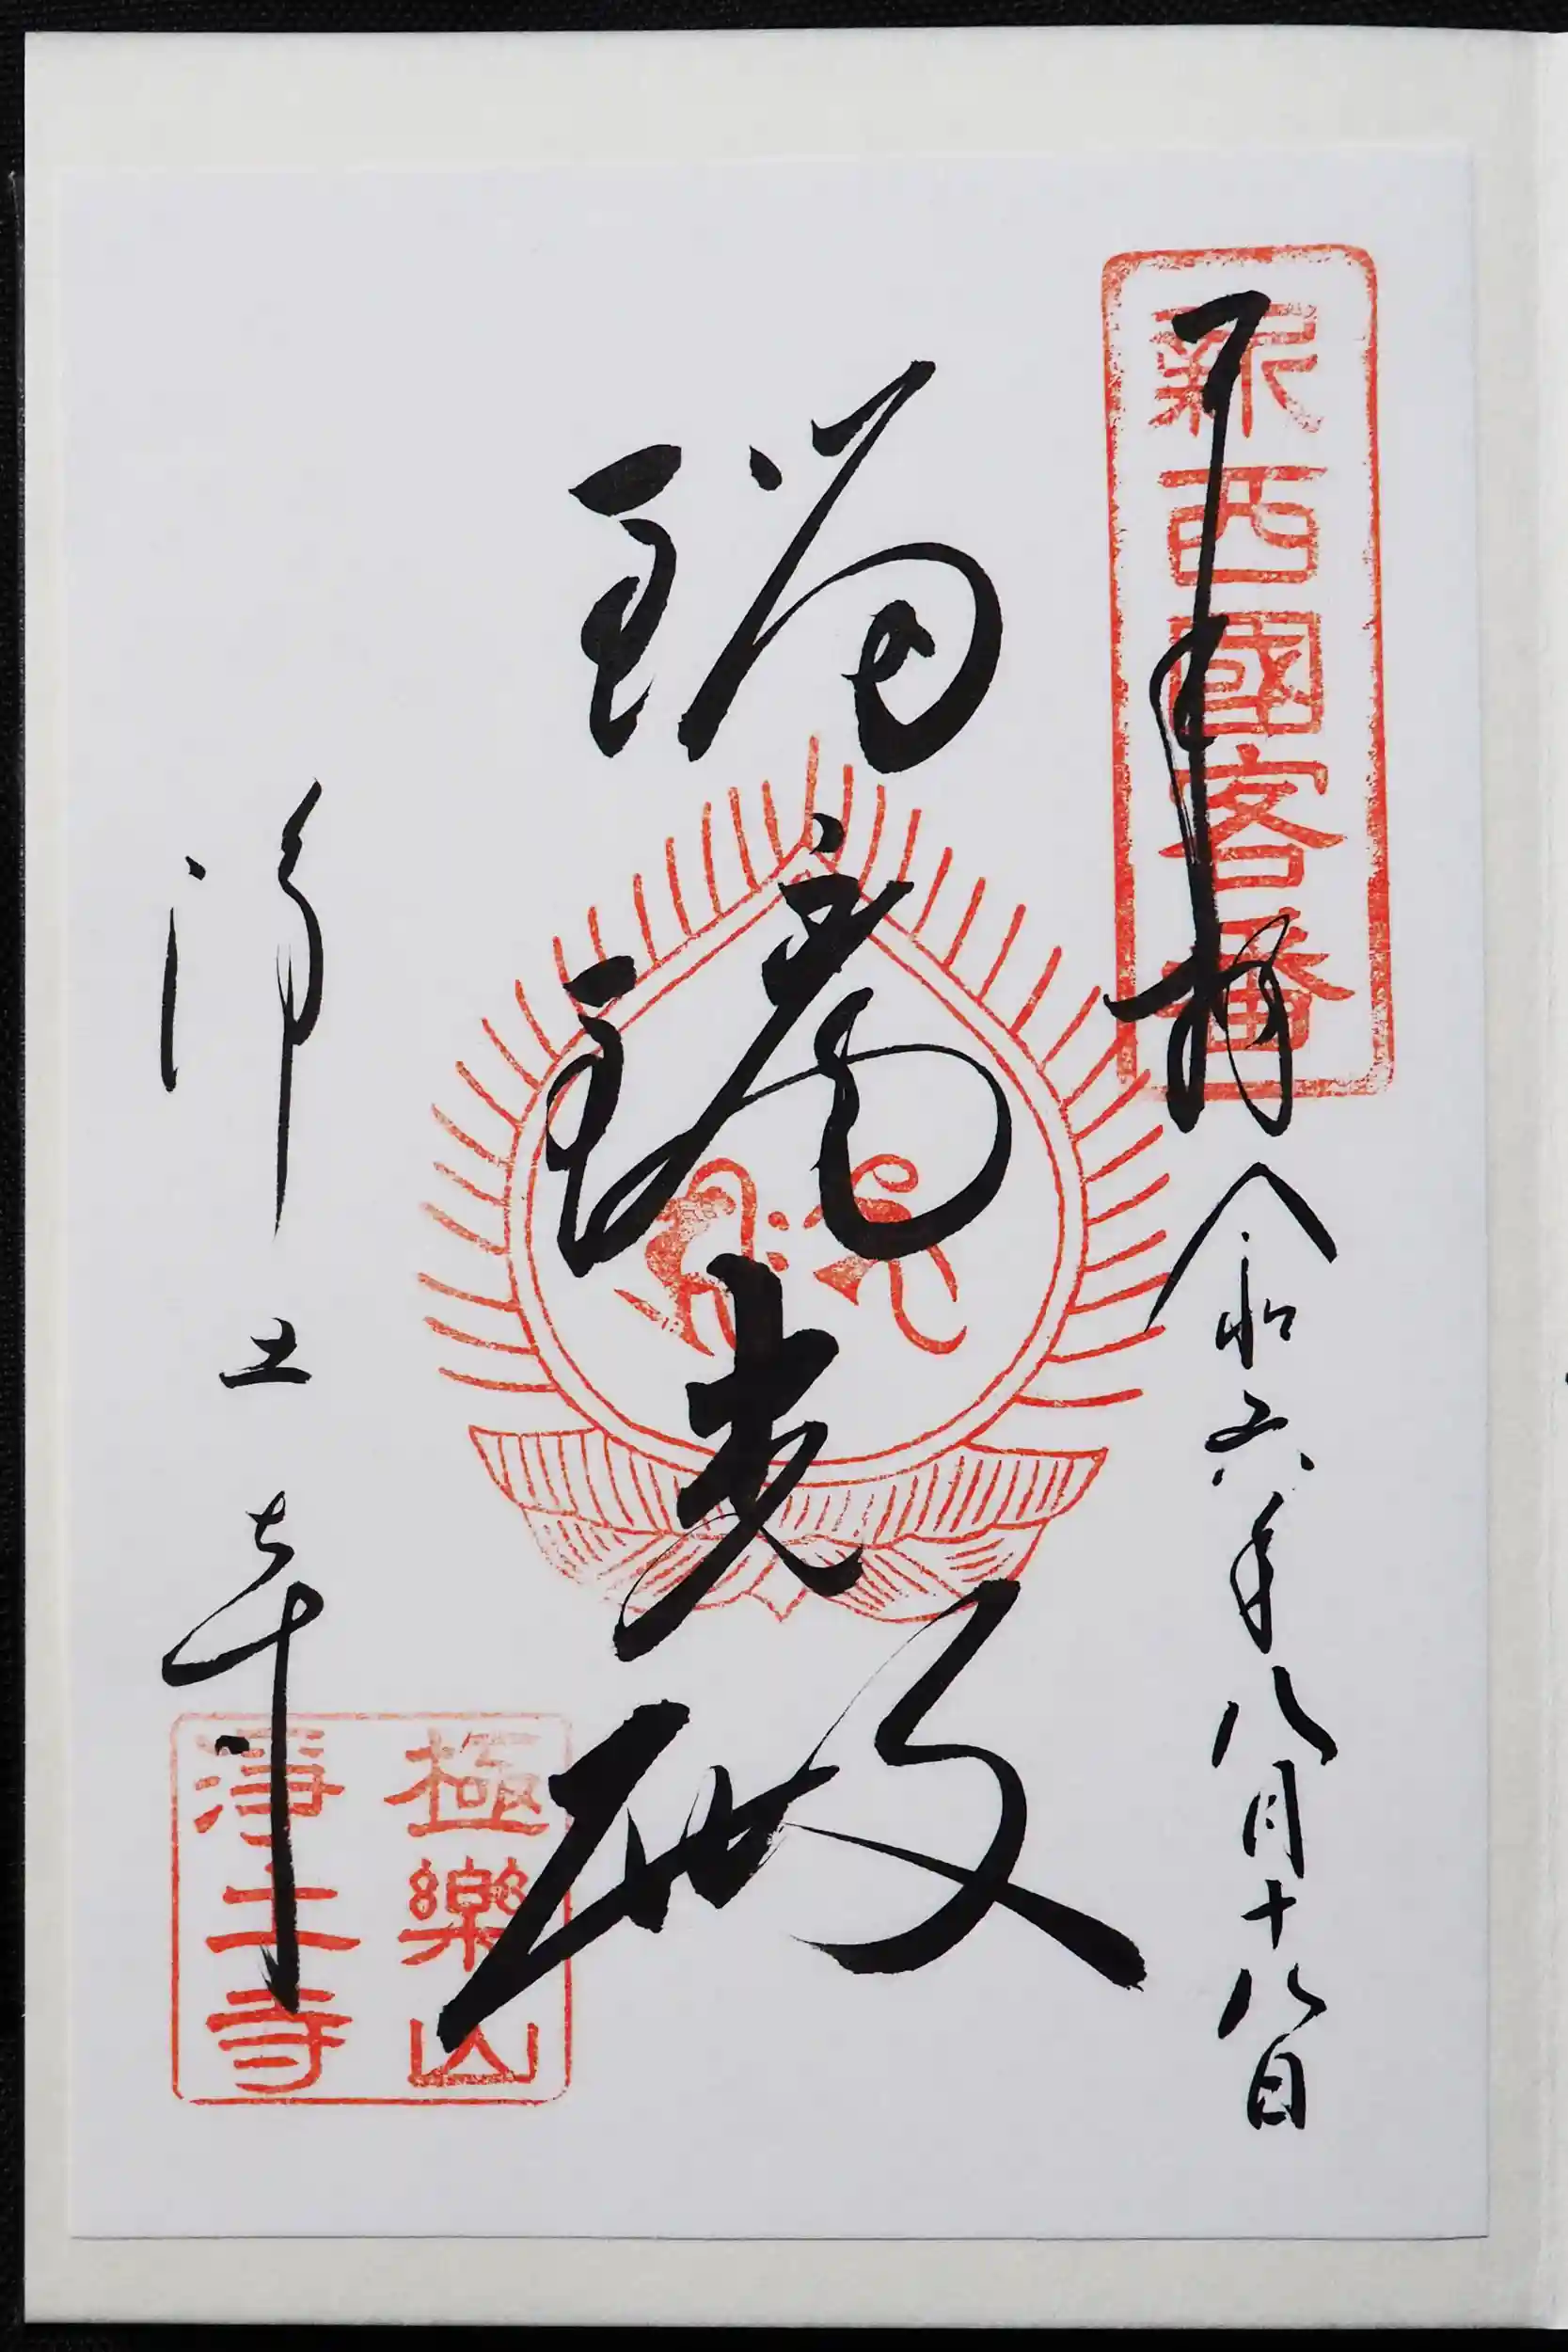 新西國客番
奉拝 令和六年八月十八日
瑠璃光殿
浄土寺
極樂山
淨土寺